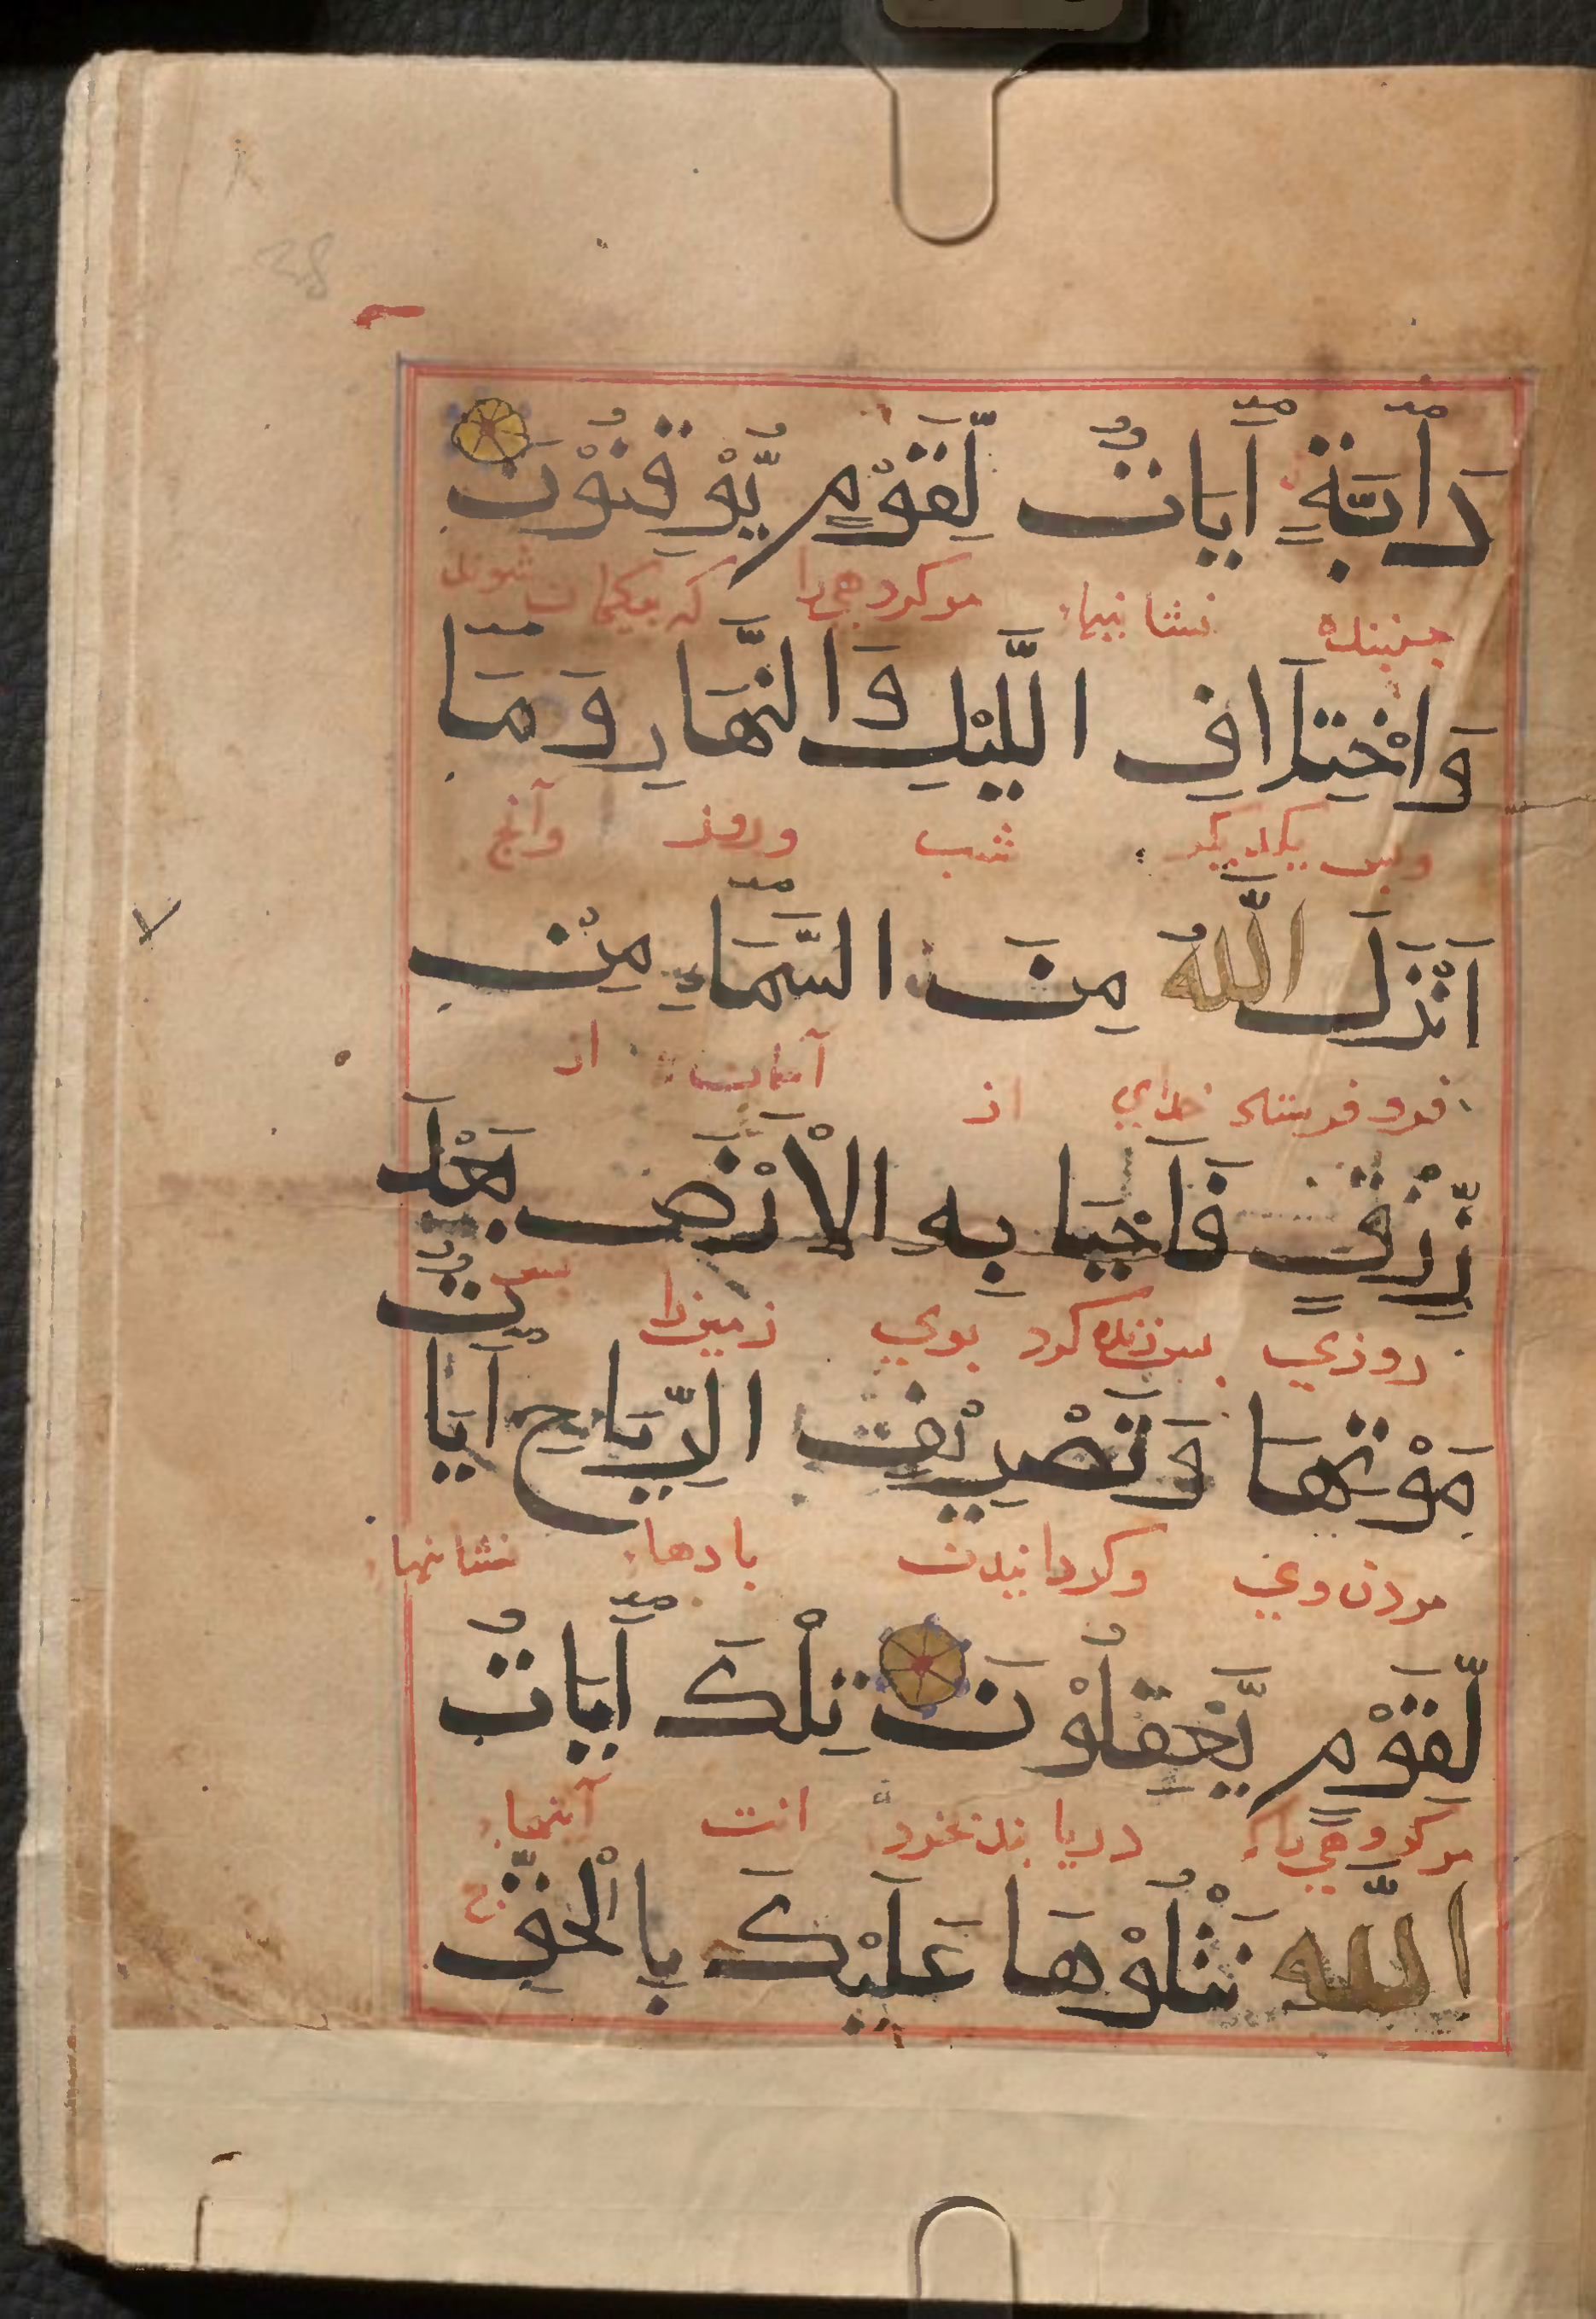 دَآبَّةٍ آيَاتٌ لِّقَوْمٍ يُّوْقِنُوْنَ
جنبنده نشانیها مر کروهی را که بیکمان شوند
وَاخْتِلَافِ اللَّيْلِ وَالنَّهَارِ وَمَآ
وپس یکدیکر شب وروز وآنج
اَنْزَلَ اللّٰهُ مِنَ السَّمَآءِ مِنْ
فرو فرستاد خدای از آسمان از
رِّزْقٍ فَاَحْيَا بِهِ الْاَرْضَ بَعْدَ
روزي پس زنده کرد بوي زمین را پس
مَوْتِهَا وَتَصْرِيْفِ الرِّيَاحِ آيَاتٌ
مردن وی وکردانیدن بادها نشانیها
لِّقَوْمٍ يَّعْقِلُوْنَ تِلْكَ آيَاتُ
مر کروهی را که دریابند بخرد انست آیتهاء
اللّٰهِ نَتْلُوْهَا عَلَيْكَ بِالْحَقِّ ج